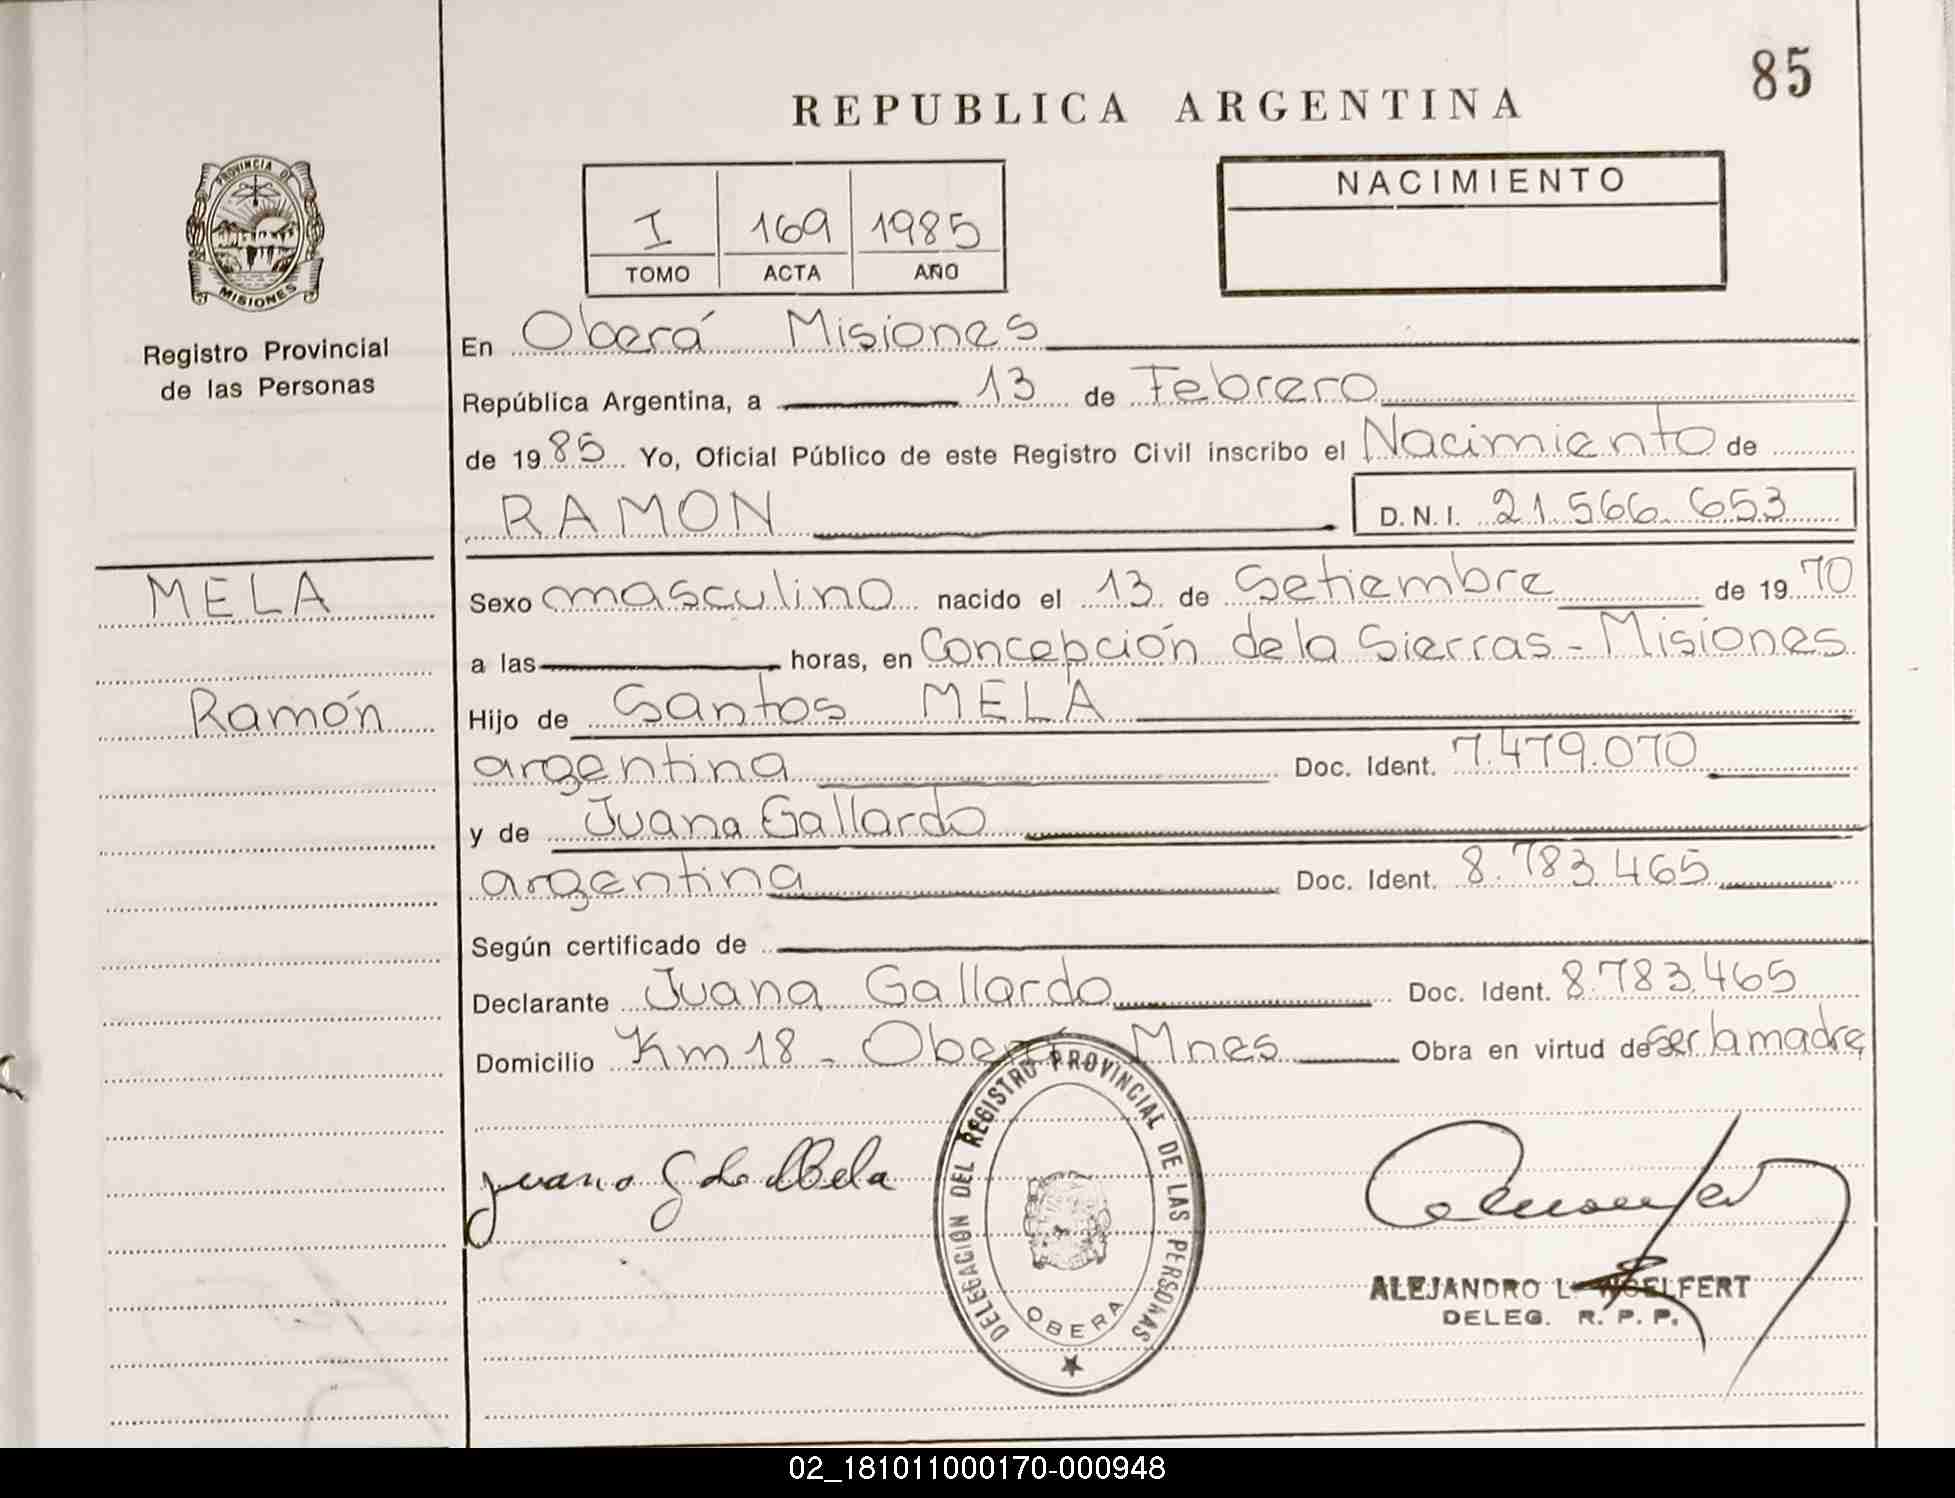 85
REPUBLICA ARGENTINA
PROVINCIA DE
MISIONES
Registro Provincial
de las Personas
I 169 1985
TOMO ACTA AÑO
NACIMIENTO
En Oberá Misiones
República Argentina, a 13 de Febrero
de 1985 Yo, Oficial Público de este Registro Civil inscribo el Nacimiento de
RAMON D.N.I. 21.566.653
MELA
Ramón
Sexo masculino nacido el 13 de Setiembre de 1970
a las horas, en Concepción de la Sierras - Misiones
Hijo de Santos MELA
argentina Doc. Ident. 7.479.070
y de Juana Gallardo
argentina Doc. Ident. 8.783.465
Según certificado de
Declarante Juana Gallardo Doc. Ident. 8.783.465
Domicilio Km 18 - Oberá Mnes Obra en virtud de ser la madre
Juana G de Mela
DELEGACIÓN DEL REGISTRO PROVINCIAL DE LAS PERSONAS
OBERA
ALEJANDRO L. WOELFERT
DELEG. R. P. P.
02_181011000170-000948